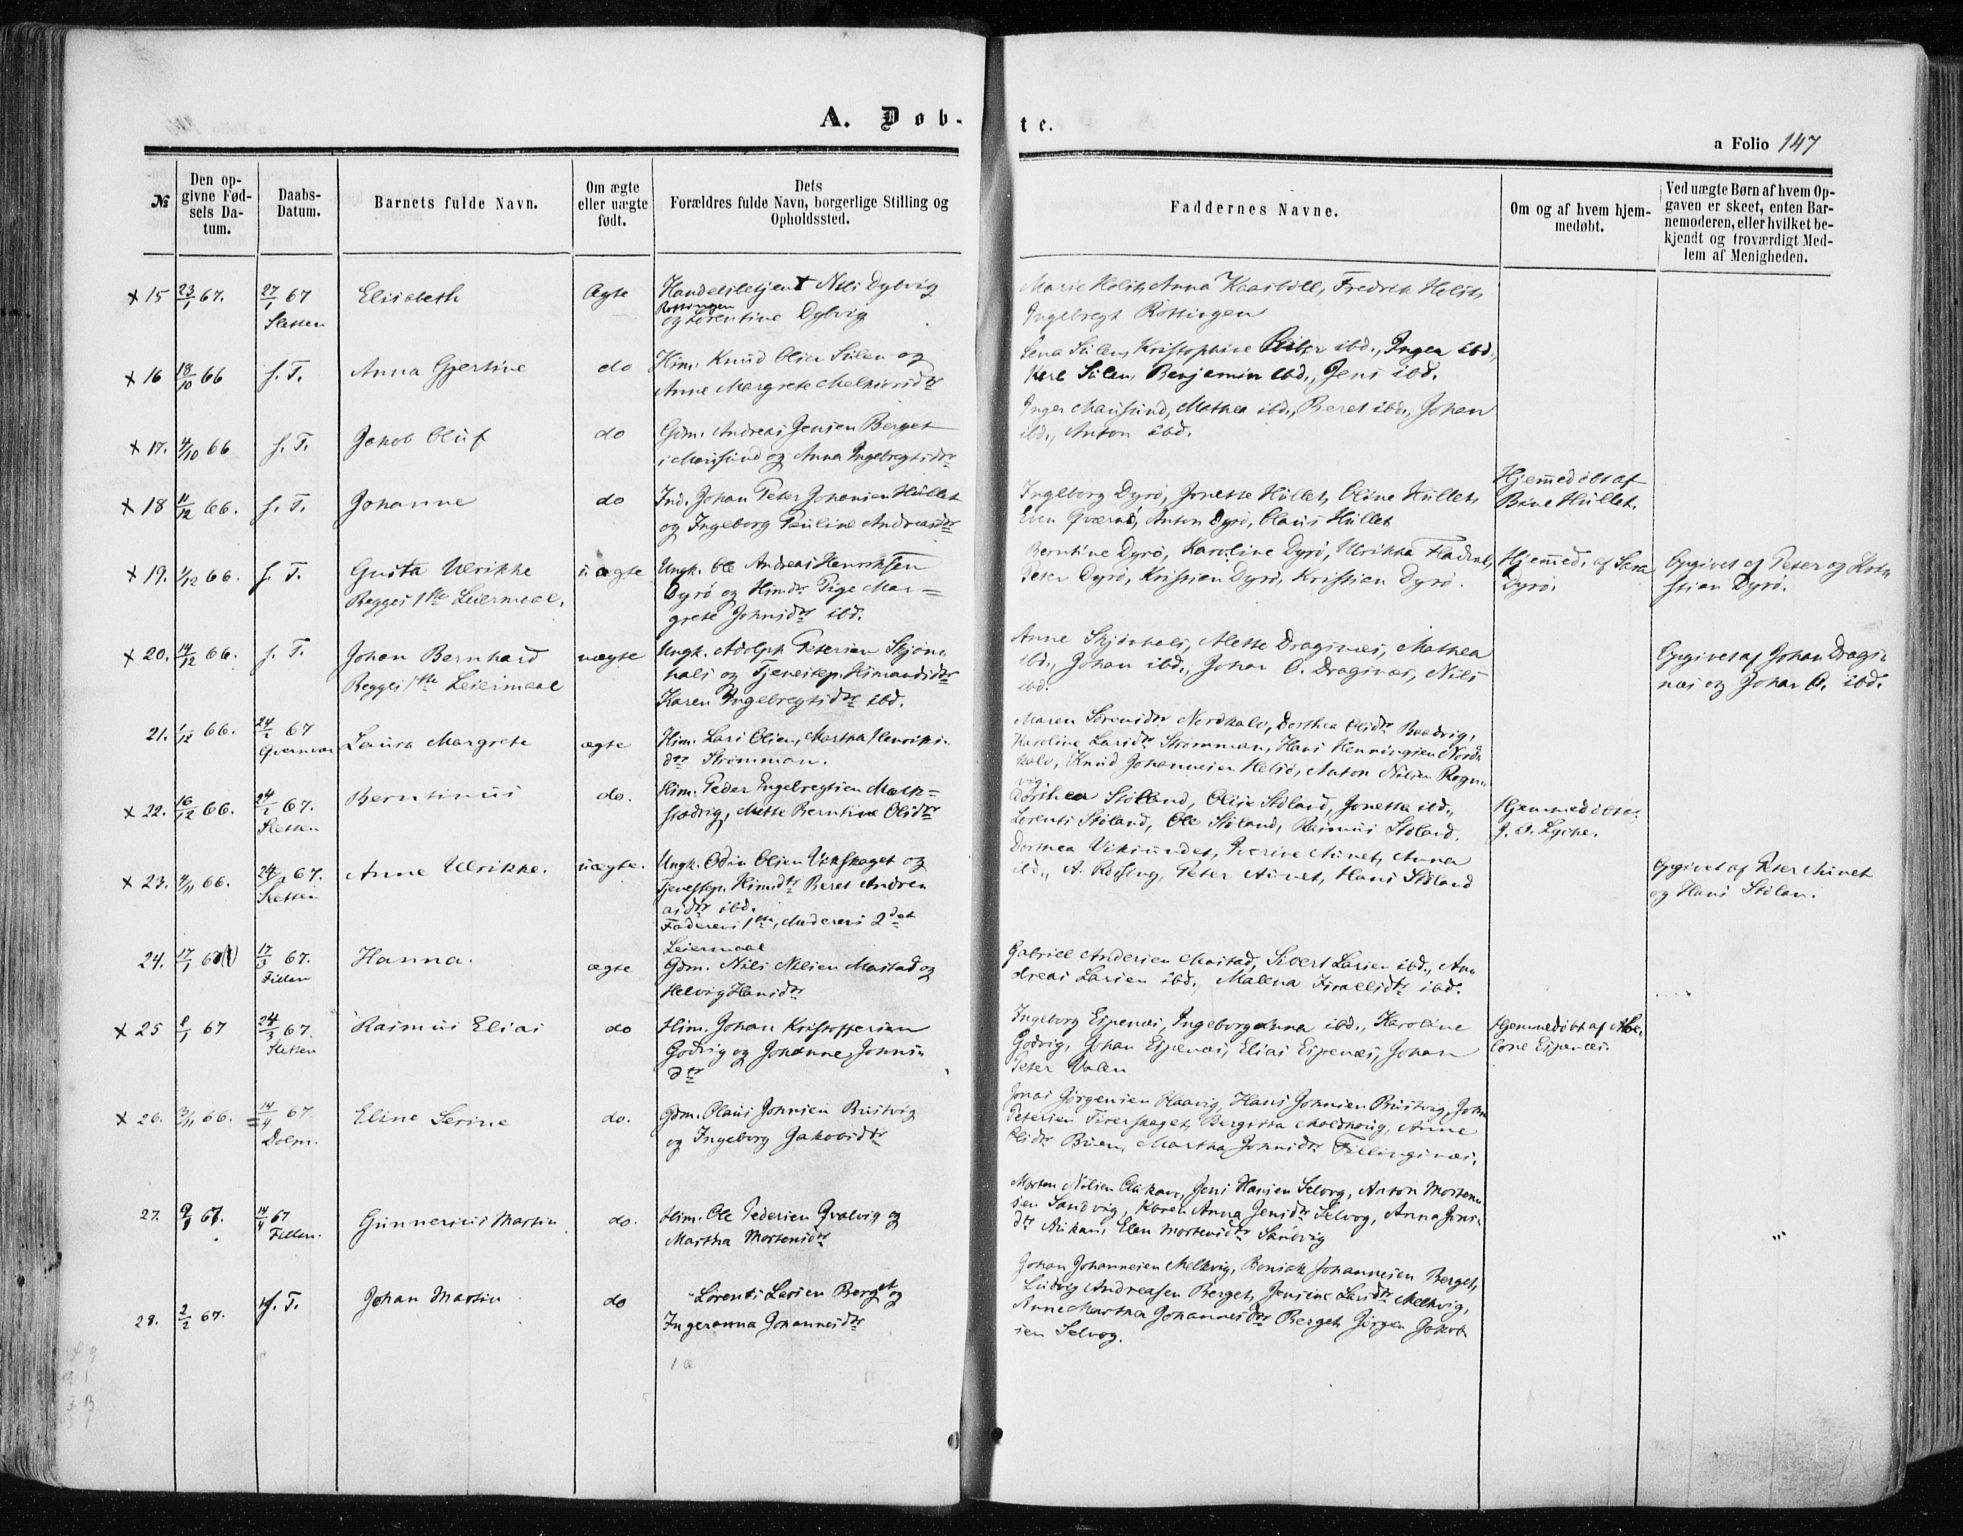 A. Døb-
te.
a Folio 147
№
Den op-
givne Fød-
sels Da-
tum.
Daabs-
Datum.
Barnets fulde Navn.
Om ægte
eller uægte
født.
Dets
Forældres fulde Navn, borgerlige Stilling og
Opholdssted.
Faddernes Navne.
Om og af hvem hjem-
medøbt.
Ved uægte Børn af hvem Op-
gaven er skeet, enten Bar-
nemoderen, eller hvilket be-
kjendt og troværdigt Med-
lem af Menigheden.
x 15 23/1 67. 27/1 67 Elisabeth Ægte Nils Dybvig
Sletten og Lorentine Dybvig
Marie Holst, Anna Fredrik Holst,
Ingebregt Rottingen
x 16 18/10 66 f. T. Anna Gjertine do Him. Knud Olsen Sulen og
Anne Margrete
Lena Sulen, Kristophine ibd., Inger ibd.,
Karl Sulen, Benjamin ibd., Jens ibd.
x 17. 4/10 66 f. T. Jakob Oluf do Gdm. Andreas Jensen Berget
i Mausund og Anna Ingebregtsdtr
Inger Mausund, Mathea ibd., Beret ibd., Johan
ibd., Anton ibd.
x 18 11/12 66. f. T. Johanne do Ind. Johan Peter Johansen Hullet
og Ingeborg Pauline Andreasdtr
Ingeborg Dyrø, Jonette Hullet, Oline Hullet,
Even Anton Dyrø, Olaus Hullet
Hjemmedøbt af
Hullet.
x 19. 1/12 66. f. T. Gusta Ulrikke uægte Ungk. Ole Andreas Henriksen
Begges 1ste Leiermaal. Dyrø og Pige Mar=
grete Johnsdtr ibd.
Berntine Dyrø, Karoline Dyrø, Ulrikka
Peter Dyrø, Kristian Dyrø, Kristien Dyrø.
Hjemmed. af Sara
Dyrø.
Opgivet af Peter og Kri-
stian Dyrø.
x 20. 14/12 66. f. T. Johan Bernhard uægte Ungk. Adolph Petersen Skjøn-
Begges 1ste Leiermaal hals og
Karen Ingebregtsdtr ibd.
Anne Skjønhals, Alette Dragsnæs, Mathea
ibd., Johan ibd., Johan O. Dragsnæs, Nils
ibd.
Opgivet af Johan Drags-
næs og Johan O. ibd.
21. 1/12 66. 24/2 67 Laura Margrete ægte Him. Lars Olsen, Martha Henriks-
dtr Strømman.
Maren Sørensdtr Nordhalv, Dorthea Olsdtr
Karoline Larsdtr Strømman, Hans Henningsen Nord-
halv, Knud Johannesen Anton Nilsen Rogn-
vig
x 22. 16/12 66. 24/2 67. Berntinus do. Him. Peder Engelregtsen
Sletten Mette Berntine Olsdtr
Dorthea Støland, Olise Støland, Jonetta ibd.,
Lorents Støland, Ole Støland, Rasmus Støland.
Hjemmedøbt af
x 23. 4/11 66. 24/2 67. Anne Ulrikke. uægte. Ungk. Odin Olsen Vikskaget og
Sletten Beret Andrea
asdtr ibd.
Faderens 1ste, Moderens 2det
Leiermaal
Dorthea Anna
ibd., Peter Hans Støland
Opgivet af Peter
og Hans Stølan.
24. 17/1 67 17/3 67. Hanna. ægte Gdm. Nils Nilsen Mastad og
Fillan Helvig Hansdtr
Gabriel Andersen Mastad, Sivert Larsen ibd., An-
dreas Larsen ibd., Malena ibd.
x 25 2/1 67 24/3 67. Rasmus Elias do Him. Johan Kristoffersen
Sletten Godvig og Johanne Johns-
dtr
Ingeborg Espenæs, Ingeborganna ibd., Karoline
Godvig, Johan Espenæs, Elias Espenæs, Johan
Peter Valen
Hjemmedøbt af
Espenæs.
x 26. 3/11 66. 14/4 67 Eline Serine do. Gdm. Olaus Johnsen Bustvig
Dolm. og Ingeborg Jakobsdtr
Jonas Jørgensen Haavig, Hans Johnsen Bustvig, John
Petersen Anne
Olsdtr Buen, Martha Johnsdtr Fillingsnæs.
27. 9/1 67. 14/4 67 Gunnerius Martin do. Him. Ole Pedersen Qvalvig og
Fillan. Martha Mortensdtr
Morten Nilsen Jens Hansen Selvog, Anton Morten-
sen Sandvig, Karen Anna Jensdtr Selvog, Anna Jens-
dtr Elen Mortensdtr Sandvig
28. 2/2 67. f. T. Johan Martin do Lorents Larsen Berget og
Ingeranna Johannesdtr
Johan Johannesen Melkvig, Johannesen Berget,
Ludvig Andreassen Berget, Jensine Larsdtr Melkvig,
Anne Martha Johannesdtr Berget, Jørgen Jakob-
sen Selvog.